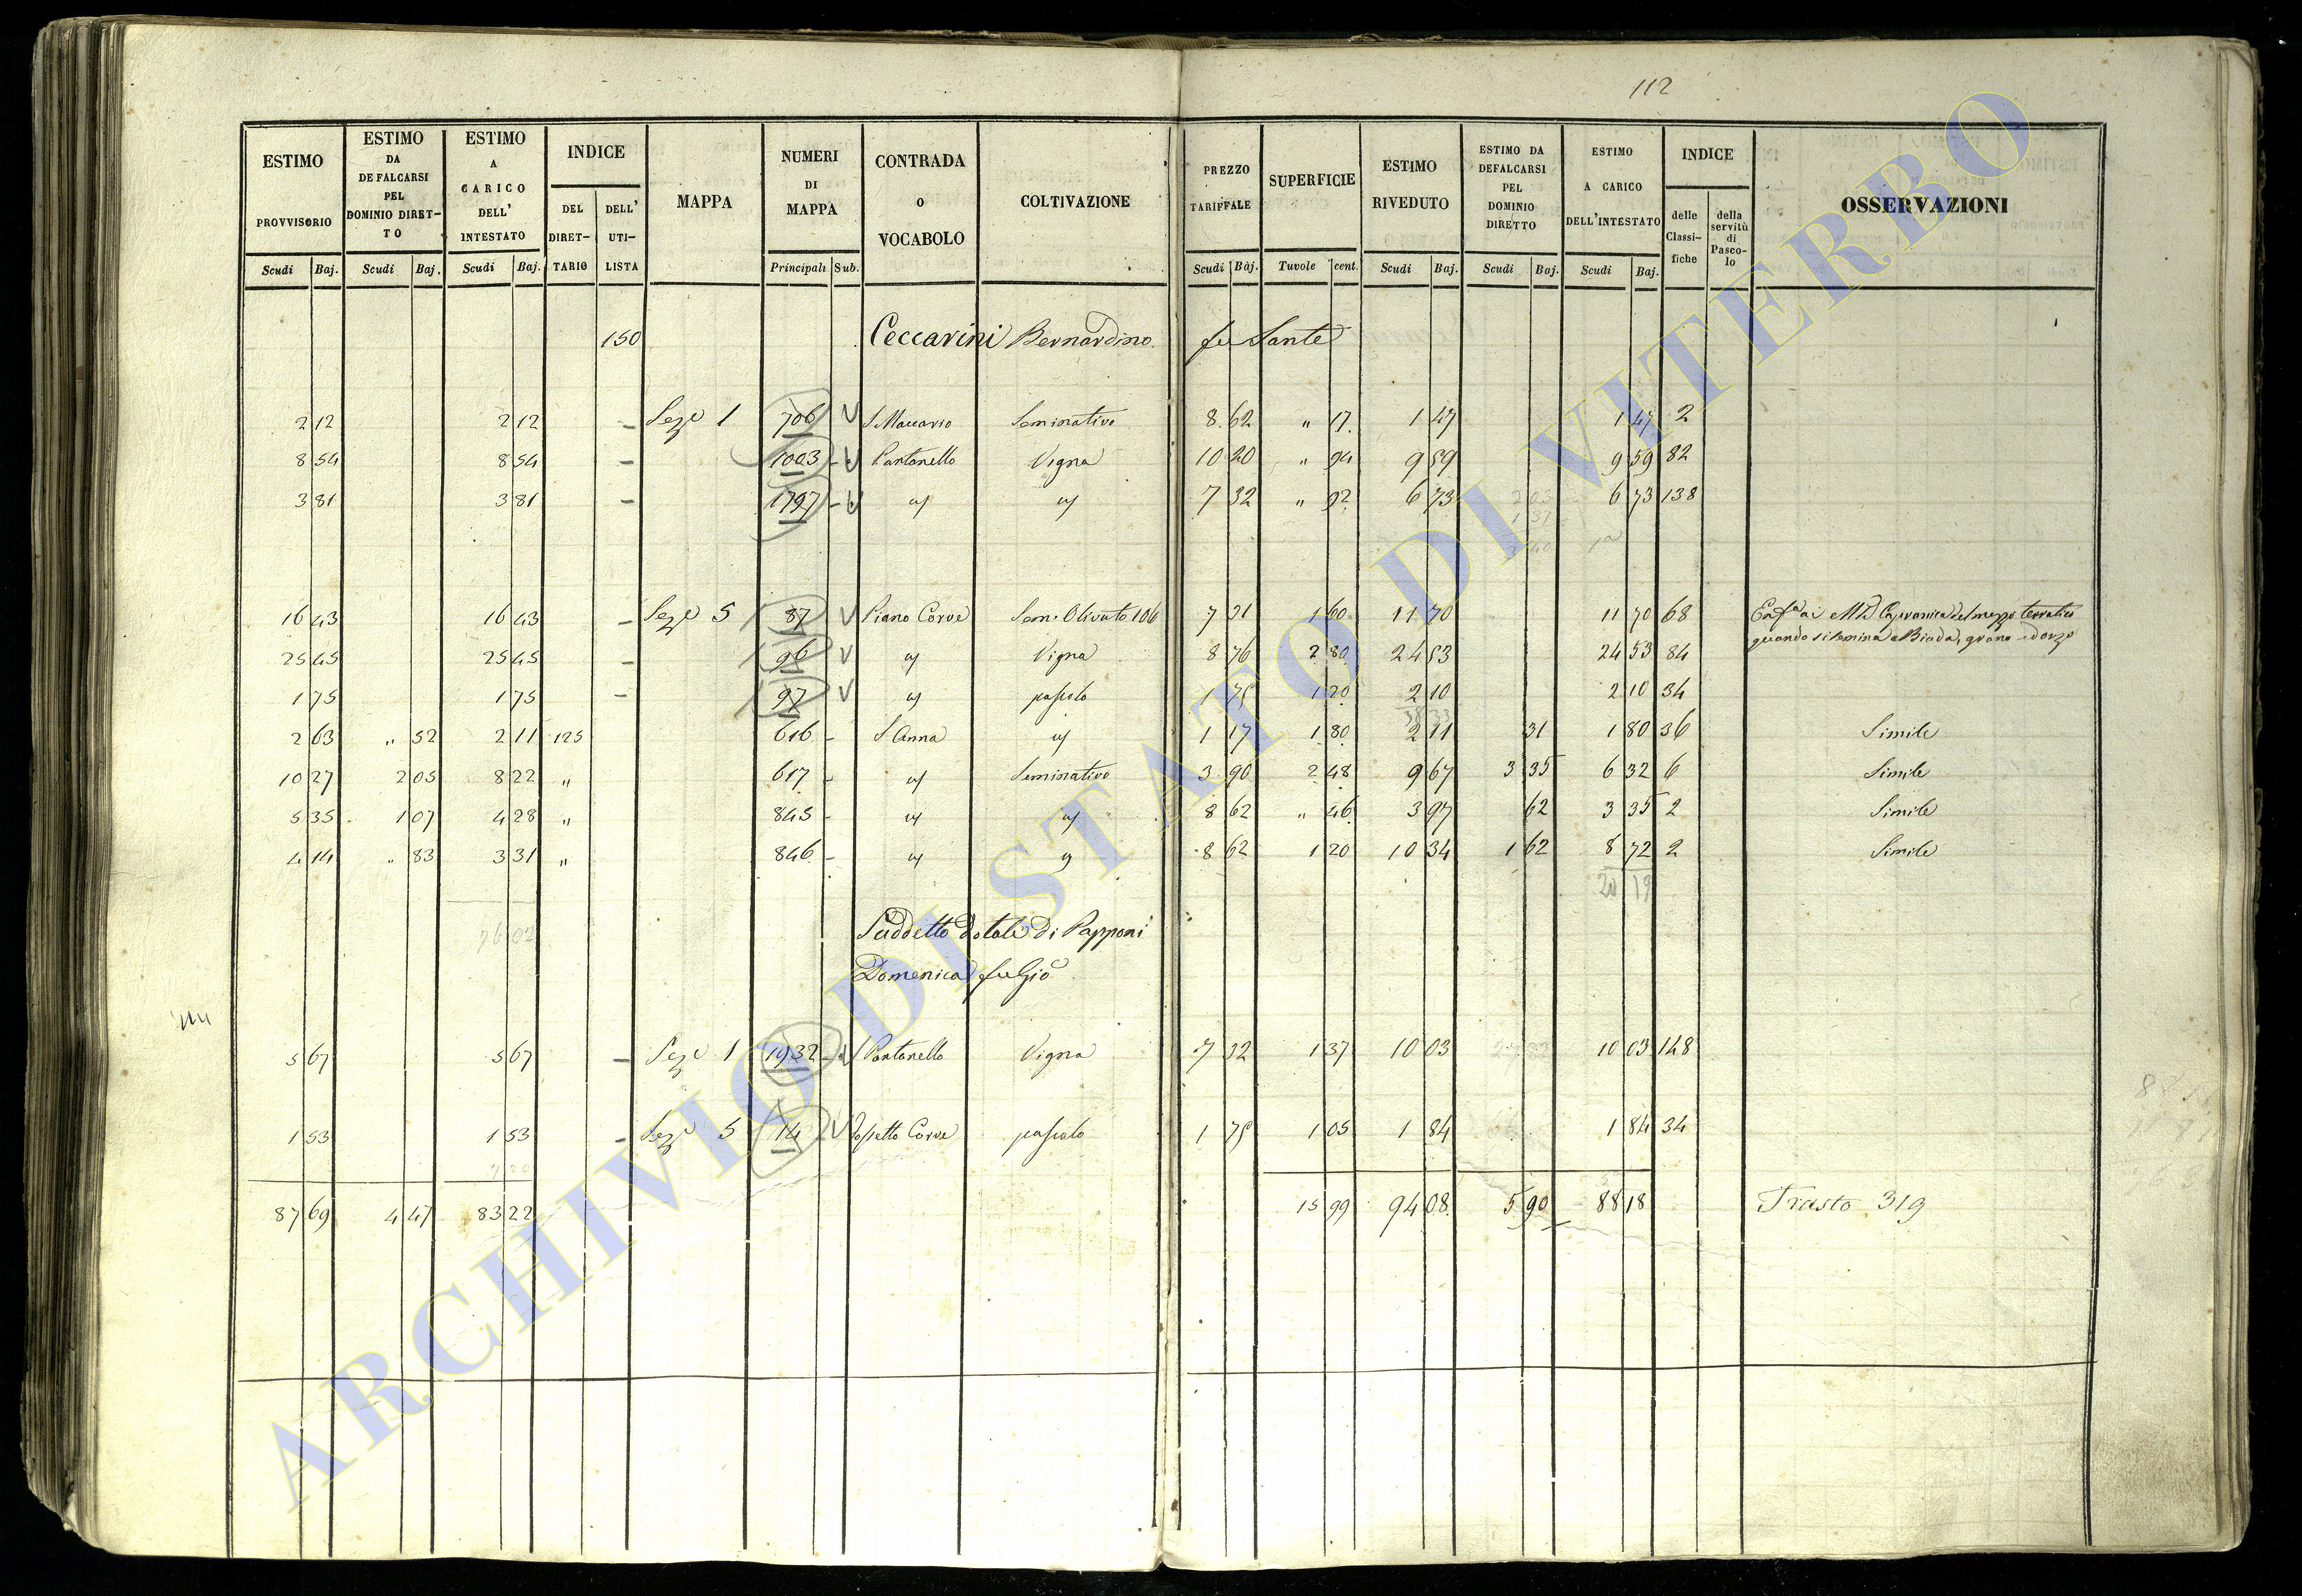 112
ESTIMO PROVVISORIO Scudi Baj.
ESTIMO DA DEFALCARSI PEL DOMINIO DIRET-TO Scudi Baj.
ESTIMO A CARICO DELL' INTESTATO Scudi Baj.
INDICE DEL DIRET-TARIO DELL' UTI-LISTA
MAPPA
NUMERI DI MAPPA Principali Sub.
CONTRADA O VOCABOLO
COLTIVAZIONE
PREZZO TARIFFALE Scudi Baj.
SUPERFICIE Tavole cent.
ESTIMO RIVEDUTO Scudi Baj.
ESTIMO DA DEFALCARSI PEL DOMINIO DIRETTO Scudi Baj.
ESTIMO A CARICO DELL'INTESTATO Scudi Baj.
INDICE delle Classi-fiche della servitù di Pasco-lo
OSSERVAZIONI
150 Ceccarini Bernardino fu Sante
2 12 2 12 – Seze 1 706 V S. Maccario Seminativo 8 62 " 17 1 47 1 47 2
8 54 8 54 – 1003 – V Pantanello Vigna 10 20 " 94 9 59 9 59 82
3 81 3 81 – 1797 – V " " 7 32 " 92 6 73 6 73 138
16 43 16 43 – Seze 5 87 V Piano Corve Sem. Olivato 106 7 31 1 60 11 70 11 70 68 del mezzo terratico
quando si semina a Biada, grano ed orzo
25 45 25 45 – 96 V " Vigna 8 76 2 80 24 53 24 53 84
1 75 1 75 – 97 V " pascolo 1 75 1 20 2 10 2 10 34
2 63 " 52 2 11 125 616 – S. Anna " 1 17 1 80 2 11 31 1 80 36 Simile
10 27 2 05 8 22 " 617 – " Seminativo 3 90 2 48 9 67 3 35 6 32 6 Simile
5 35 1 07 4 28 " 845 – " " 8 62 " 46 3 97 62 3 35 2 Simile
4 14 " 83 3 31 " 846 – " " 8 62 1 20 10 34 1 62 8 72 2 Simile
20 19
76 02
Suddetto dotali di Papponi
Domenica fu Gio
5 67 5 67 – Seze 1 1932 – V Pantanello Vigna 7 32 1 37 10 03 10 03 148
1 53 1 53 – Seze 5 14 V Fossetto Corve pascolo 1 75 1 05 1 84 1 84 34
7 20
87 69 4 47 83 22 15 99 94 08 5 90 88 18 Trasto 319
ARCHIVIO DI STATO DI VITERBO